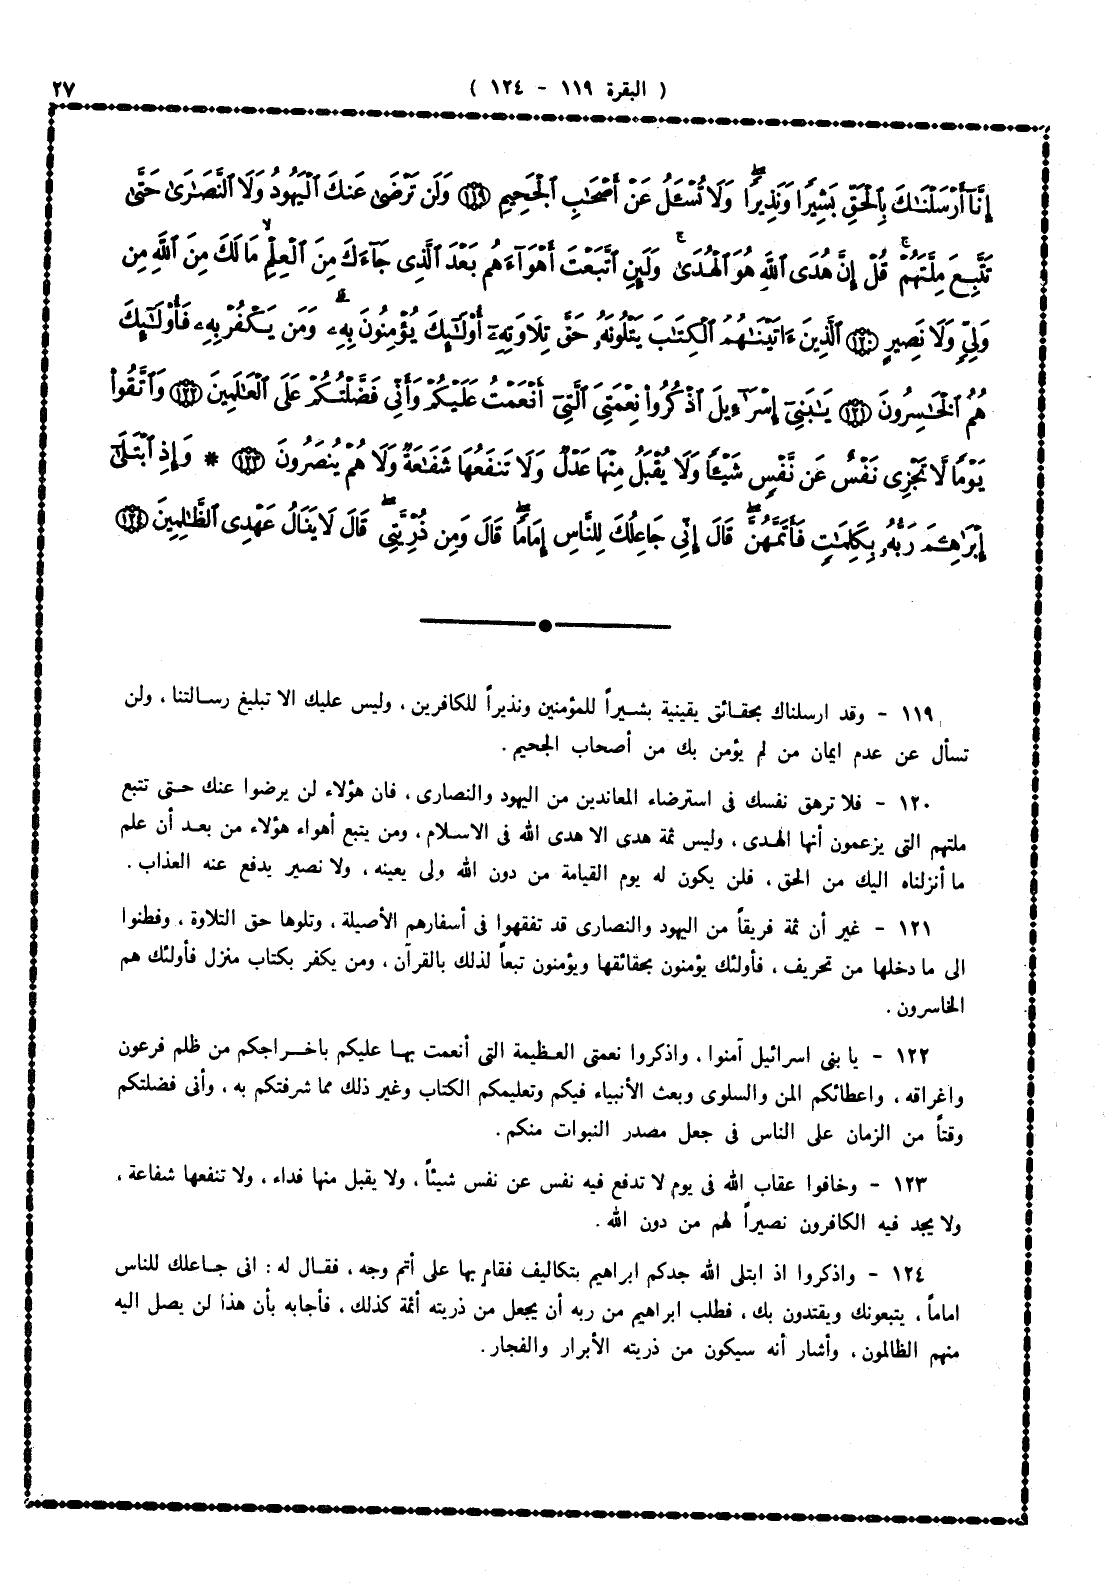 ( البقرة ١١٩ - ١٢٤ )
٢٧
إِنَّآ أَرْسَلْنَٰكَ بِٱلْحَقِّ بَشِيرًا وَنَذِيرًا ۖ وَلَا تُسْـَٔلُ عَنْ أَصْحَٰبِ ٱلْجَحِيمِ ﴿١١٩﴾ وَلَن تَرْضَىٰ عَنكَ ٱلْيَهُودُ وَلَا ٱلنَّصَٰرَىٰ حَتَّىٰ
تَتَّبِعَ مِلَّتَهُمْ ۗ قُلْ إِنَّ هُدَى ٱللَّهِ هُوَ ٱلْهُدَىٰ ۗ وَلَئِنِ ٱتَّبَعْتَ أَهْوَآءَهُم بَعْدَ ٱلَّذِى جَآءَكَ مِنَ ٱلْعِلْمِ ۙ مَا لَكَ مِنَ ٱللَّهِ مِن
وَلِىٍّ وَلَا نَصِيرٍ ﴿١٢٠﴾ ٱلَّذِينَ ءَاتَيْنَٰهُمُ ٱلْكِتَٰبَ يَتْلُونَهُۥ حَقَّ تِلَاوَتِهِۦٓ أُوْلَٰٓئِكَ يُؤْمِنُونَ بِهِۦ ۗ وَمَن يَكْفُرْ بِهِۦ فَأُوْلَٰٓئِكَ
هُمُ ٱلْخَٰسِرُونَ ﴿١٢١﴾ يَٰبَنِىٓ إِسْرَٰٓءِيلَ ٱذْكُرُواْ نِعْمَتِىَ ٱلَّتِىٓ أَنْعَمْتُ عَلَيْكُمْ وَأَنِّى فَضَّلْتُكُمْ عَلَى ٱلْعَٰلَمِينَ ﴿١٢٢﴾ وَٱتَّقُواْ
يَوْمًا لَّا تَجْزِى نَفْسٌ عَن نَّفْسٍ شَيْـًٔا وَلَا يُقْبَلُ مِنْهَا عَدْلٌ وَلَا تَنفَعُهَا شَفَٰعَةٌ وَلَا هُمْ يُنصَرُونَ ﴿١٢٣﴾ * وَإِذِ ٱبْتَلَىٰٓ
إِبْرَٰهِـۧمَ رَبُّهُۥ بِكَلِمَٰتٍ فَأَتَمَّهُنَّ ۖ قَالَ إِنِّى جَاعِلُكَ لِلنَّاسِ إِمَامًا ۖ قَالَ وَمِن ذُرِّيَّتِى ۖ قَالَ لَا يَنَالُ عَهْدِى ٱلظَّٰلِمِينَ ﴿١٢٤﴾
١١٩ - وقد ارسلناك بحقائق يقينية بشيراً للمؤمنين ونذيراً للكافرين ، وليس عليك الا تبليغ رسالتنا ، ولن
تسأل عن عدم ايمان من لم يؤمن بك من أصحاب الجحيم .
١٢٠ - فلا ترهق نفسك فى استرضاء المعاندين من اليهود والنصارى ، فان هؤلاء لن يرضوا عنك حتى تتبع
ملتهم التى يزعمون أنها الهدى ، وليس ثمة هدى الا هدى الله فى الاسلام ، ومن يتبع أهواء هؤلاء من بعد أن علم
ما أنزلناه اليك من الحق ، فلن يكون له يوم القيامة من دون الله ولى يعينه ، ولا نصير يدفع عنه العذاب .
١٢١ - غير أن ثمة فريقاً من اليهود والنصارى قد تفقهوا فى أسفارهم الأصيلة ، وتلوها حق التلاوة ، وفطنوا
الى ما دخلها من تحريف ، فأولئك يؤمنون بحقائقها ويؤمنون تبعاً لذلك بالقرآن ، ومن يكفر بكتاب منزل فأولئك هم
الخاسرون .
١٢٢ - يا بنى اسرائيل آمنوا ، واذكروا نعمتى العظيمة التى أنعمت بها عليكم باخراجكم من ظلم فرعون
واغراقه ، واعطائكم المن والسلوى وبعث الأنبياء فيكم وتعليمكم الكتاب وغير ذلك مما شرفتكم به ، وأنى فضلتكم
وقتاً من الزمان على الناس فى جعل مصدر النبوات منكم .
١٢٣ - وخافوا عقاب الله فى يوم لا تدفع فيه نفس عن نفس شيئاً ، ولا يقبل منها فداء ، ولا تنفعها شفاعة ،
ولا يجد فيه الكافرون نصيراً لهم من دون الله .
١٢٤ - واذكروا اذ ابتلى الله جدكم ابراهيم بتكاليف فقام بها على أتم وجه ، فقال له : انى جاعلك للناس
اماماً ، يتبعونك ويقتدون بك ، فطلب ابراهيم من ربه أن يجعل من ذريته أئمة كذلك ، فأجابه بأن هذا لن يصل اليه
منهم الظالمون ، وأشار أنه سيكون من ذريته الأبرار والفجار .